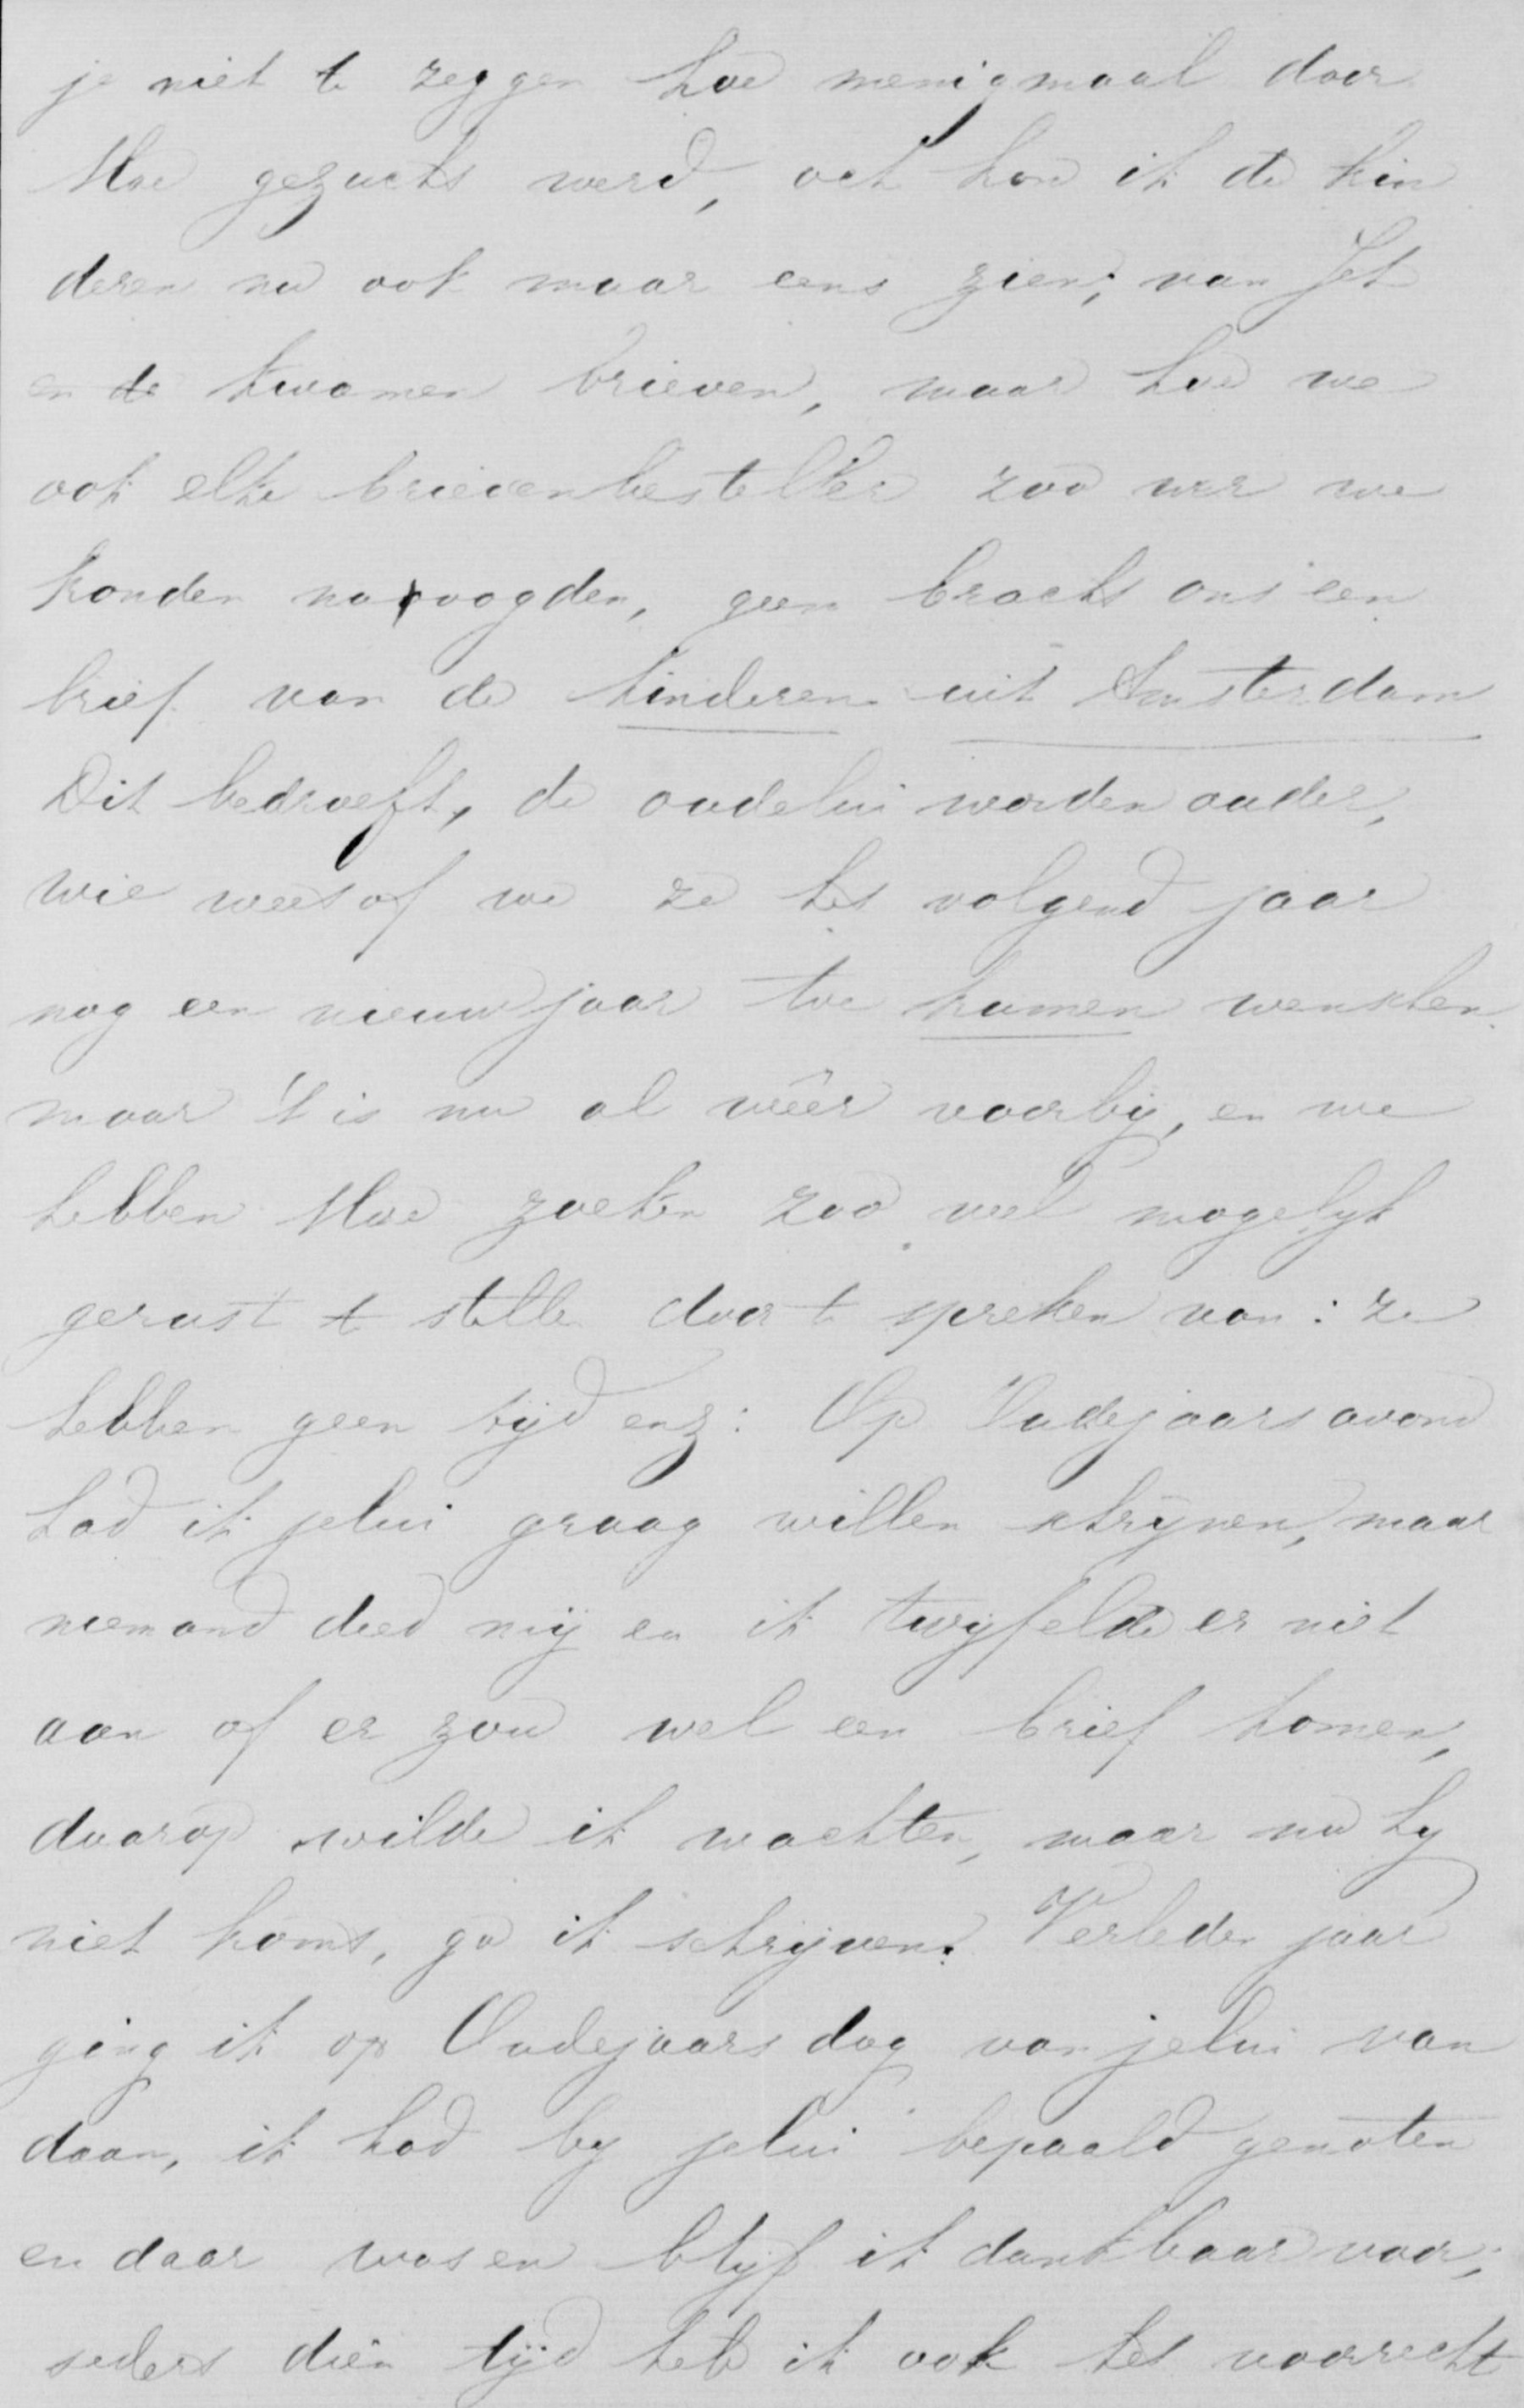 je niet te zeggen hoe menigmaal door
Moe gezucht werd, och kon ik de kin
deren nu ook maar eens zien; van Jet
en de kwamen brieven, maar hoe we
ook elke brievenbesteller zoo ver we
konden naoogden, geen bracht ons een
brief van de kinderen uit Amsterdam
Dit bedroeft, de oudelui worden ouder,
wie weet of we ze het volgend jaar
nog een nieuwjaar toe kunnen wenschen.
maar 't is nu al wêer voorbij, en we
hebben Moe zoeken zoo veel mogelyk
gerust te stellen door te spreken van: ze
hebben geen tijd enz: Op Oudejaarsavond
had ik jelui graag willen schrijven, maar
niemand deed mij en ik twyfelde er niet
aan of er zou wel een brief komen,
daarop wilde ik wachten, maar nu hy
niet komt, ga ik schrijven. Verleden jaar
ging ik op Oudejaarsdag van jelui van
daan, ik had by jelui bepaald genoten
en daar was en blijf ik dankbaar voor;
seders dien tijd heb ik ook het voorrecht